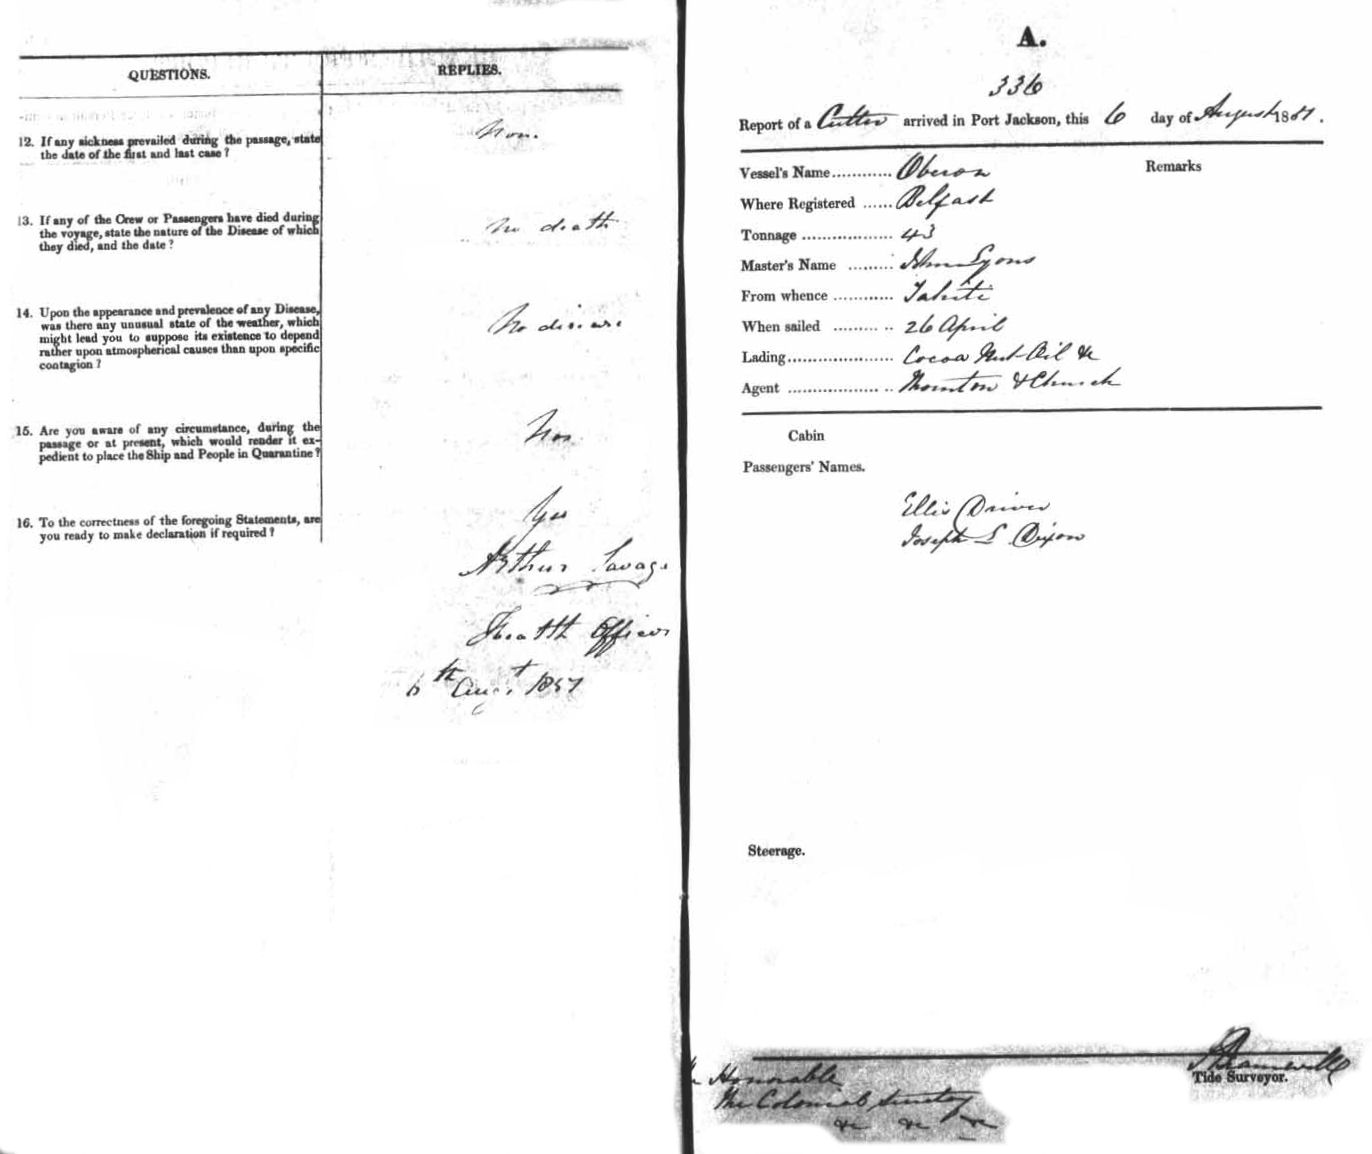 QUESTIONS.
REPLIES.
12. If any sickness prevailed during the passage, state
the date of the first and last case ?
13. If any of the Crew or Passengers have died during
the voyage, state the nature of the Disease of which
they died, and the date ?
No death
14. Upon the appearance and prevalence of any Disease,
was there any unusual state of the weather, which
might lead you to suppose its existence to depend
rather upon atmospherical causes than upon specific
contagion ?
No disease
15. Are you aware of any circumstance, during the
passage or at present, which would render it ex-
pedient to place the Ship and People in Quarantine ?
16. To the correctness of the foregoing Statements, are
you ready to make declaration if required ?
Yes
Arthur Savage
Health Officer
6th Augt 1857
A.
336
Report of a Cutter arrived in Port Jackson, this 6 day of August 1857.
Vessel's Name ............ Oberon
Remarks
Where Registered ...... Belfast
Tonnage .................. 43
Master's Name ......... John Lyons
From whence ............ Tahiti
When sailed ......... .. 26 April
Lading..................... Cocoa Nut Oil &c
Agent .................. .. Thornton & Church
Cabin
Passengers' Names.
Ellis Driver
Joseph L Dixon
Steerage.
Tide Surveyor.
Honorable
The Colonial Secretary
&c &c &c